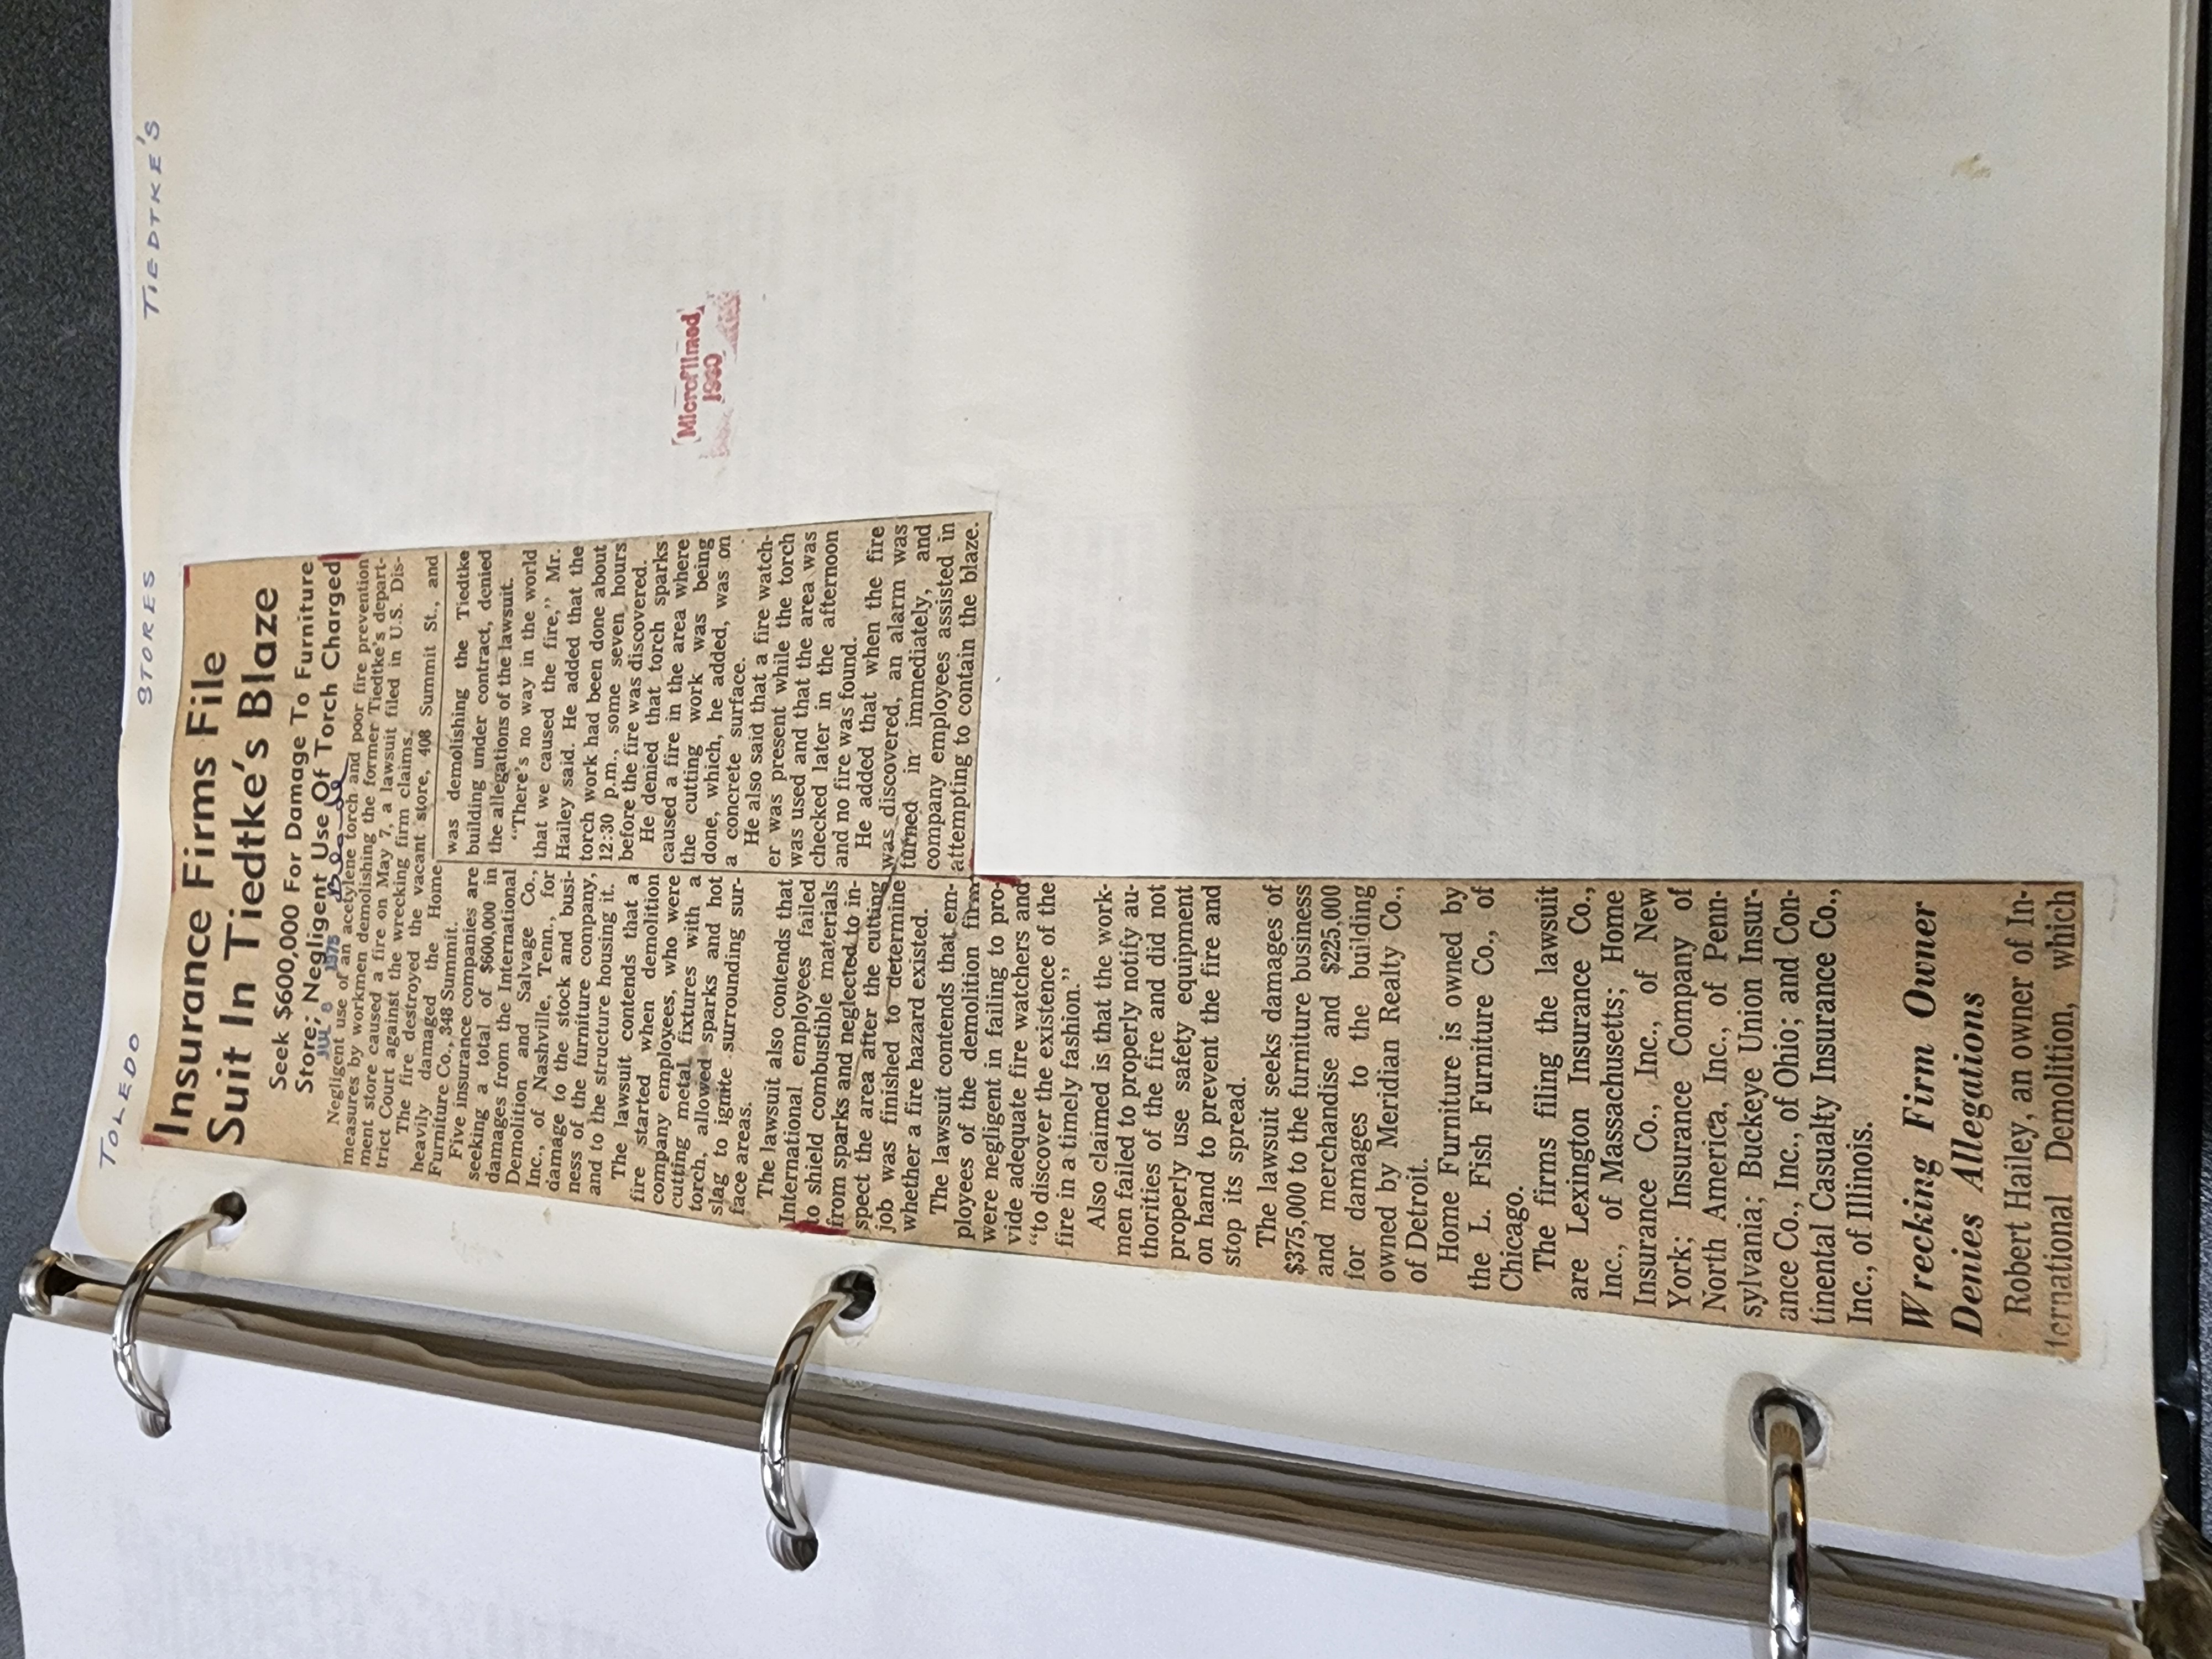 TOLEDO STORES TIEDTKE'S
Insurance Firms File
Suit In Tiedtke's Blaze
Seek $600,000 For Damage To Furniture
Store; Negligent Use Of Torch Charged
JUL 8 1975 Blade
Negligent use of an acetylene torch and poor fire prevention
measures by workmen demolishing the former Tiedtke's depart-
ment store caused a fire on May 7, a lawsuit filed in U.S. Dis-
trict Court against the wrecking firm claims.
The fire destroyed the vacant store, 408 Summit St., and
heavily damaged the Home
Furniture Co., 348 Summit.
Five insurance companies are
seeking a total of $600,000 in
damages from the International
Demolition and Salvage Co.,
Inc., of Nashville, Tenn., for
damage to the stock and busi-
ness of the furniture company,
and to the structure housing it.
The lawsuit contends that a
fire started when demolition
company employees, who were
cutting metal fixtures with a
torch, allowed sparks and hot
slag to ignite surrounding sur-
face areas.
The lawsuit also contends that
International employees failed
to shield combustible materials
from sparks and neglected to in-
spect the area after the cutting
job was finished to determine
whether a fire hazard existed.
The lawsuit contends that em-
ployees of the demolition firm
were negligent in failing to pro-
vide adequate fire watchers and
"to discover the existence of the
fire in a timely fashion."
Also claimed is that the work-
men failed to properly notify au-
thorities of the fire and did not
properly use safety equipment
on hand to prevent the fire and
stop its spread.
The lawsuit seeks damages of
$375,000 to the furniture business
and merchandise and $225,000
for damages to the building
owned by Meridian Realty Co.,
of Detroit.
Home Furniture is owned by
the L. Fish Furniture Co., of
Chicago.
The firms filing the lawsuit
are Lexington Insurance Co.,
Inc., of Massachusetts; Home
Insurance Co., Inc., of New
York; Insurance Company of
North America, Inc., of Penn-
sylvania; Buckeye Union Insur-
ance Co., Inc., of Ohio; and Con-
tinental Casualty Insurance Co.,
Inc., of Illinois.
Wrecking Firm Owner
Denies Allegations
Robert Hailey, an owner of In-
ternational Demolition, which
was demolishing the Tiedtke
building under contract, denied
the allegations of the lawsuit.
"There's no way in the world
that we caused the fire," Mr.
Hailey said. He added that the
torch work had been done about
12:30 p.m., some seven hours
before the fire was discovered.
He denied that torch sparks
caused a fire in the area where
the cutting work was being
done, which, he added, was on
a concrete surface.
He also said that a fire watch-
er was present while the torch
was used and that the area was
checked later in the afternoon
and no fire was found.
He added that when the fire
was discovered, an alarm was
turned in immediately, and
company employees assisted in
attempting to contain the blaze.
Microfilmed